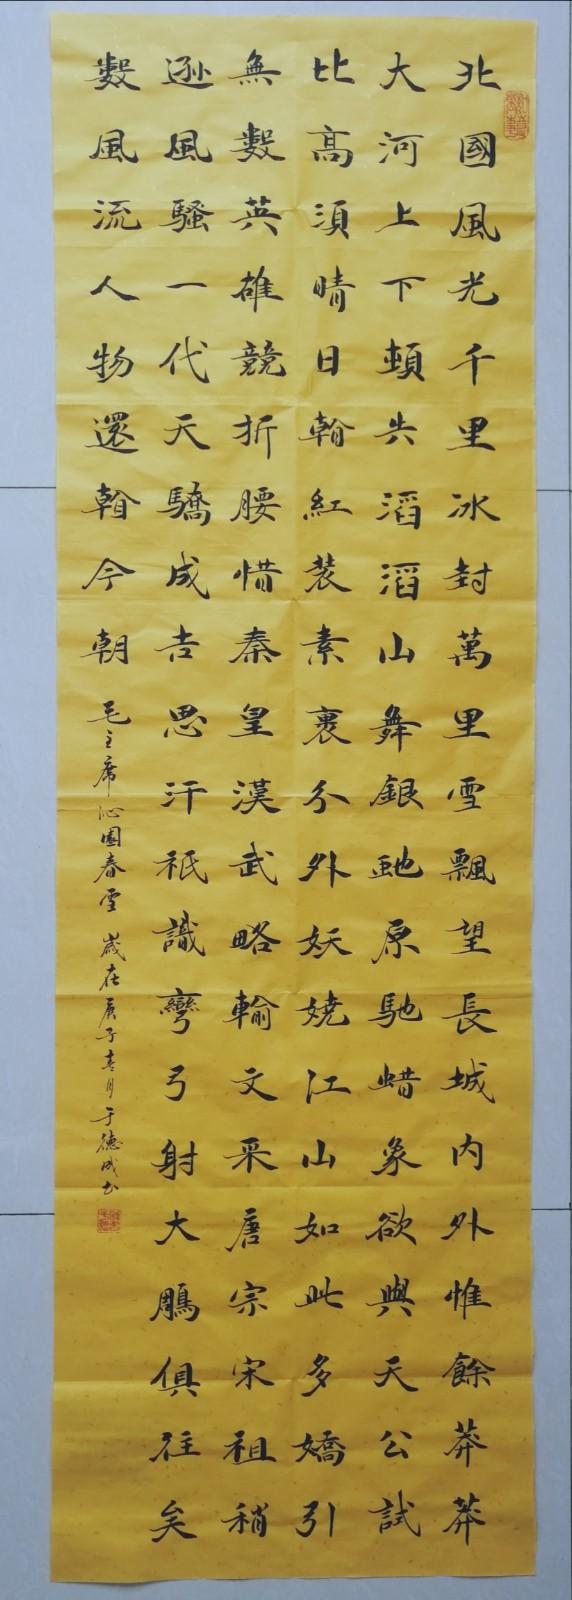 北國風光千里冰封萬里雪飄望長城內外惟餘莽莽
大河上下頓失滔滔山舞銀蛇原馳蜡象欲與天公試
比高須晴日翰紅裝素裹分外妖嬈江山如此多嬌引
無數英雄競折腰惜秦皇漢武略輸文采唐宗宋祖稍
遜風騷一代天驕成吉思汗祇識彎弓射大鵰俱往矣
數風流人物還翰今朝
毛主席沁園春雪 歲在庚子春月于德成书